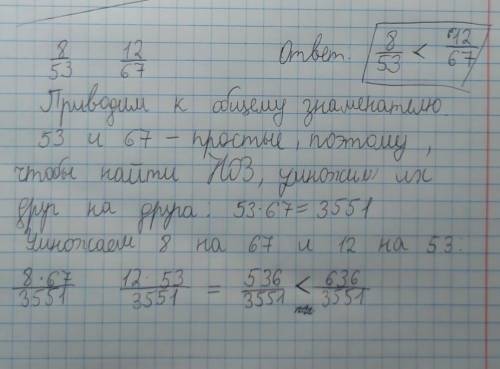 8/53 12/67 Ответ. 8/53 < 12/67
Приводим к общему знаменателю.
53 и 67 – простые, поэтому,
чтобы найти НОЗ, умножим их
друг на друга: 53·67=3551
Умножаем 8 на 67 и 12 на 53.
8·67/3551 12·53/3551 = 536/3551 < 636/3551